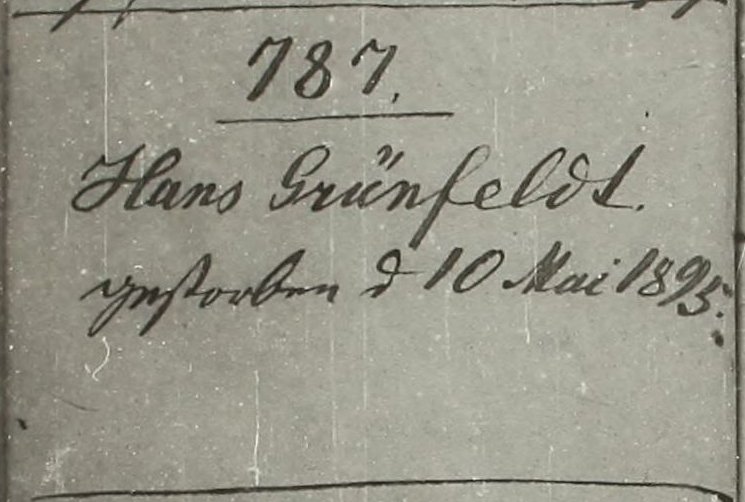 787.
Hans Grünfeldt.
gestorben d 10 Mai 1895.